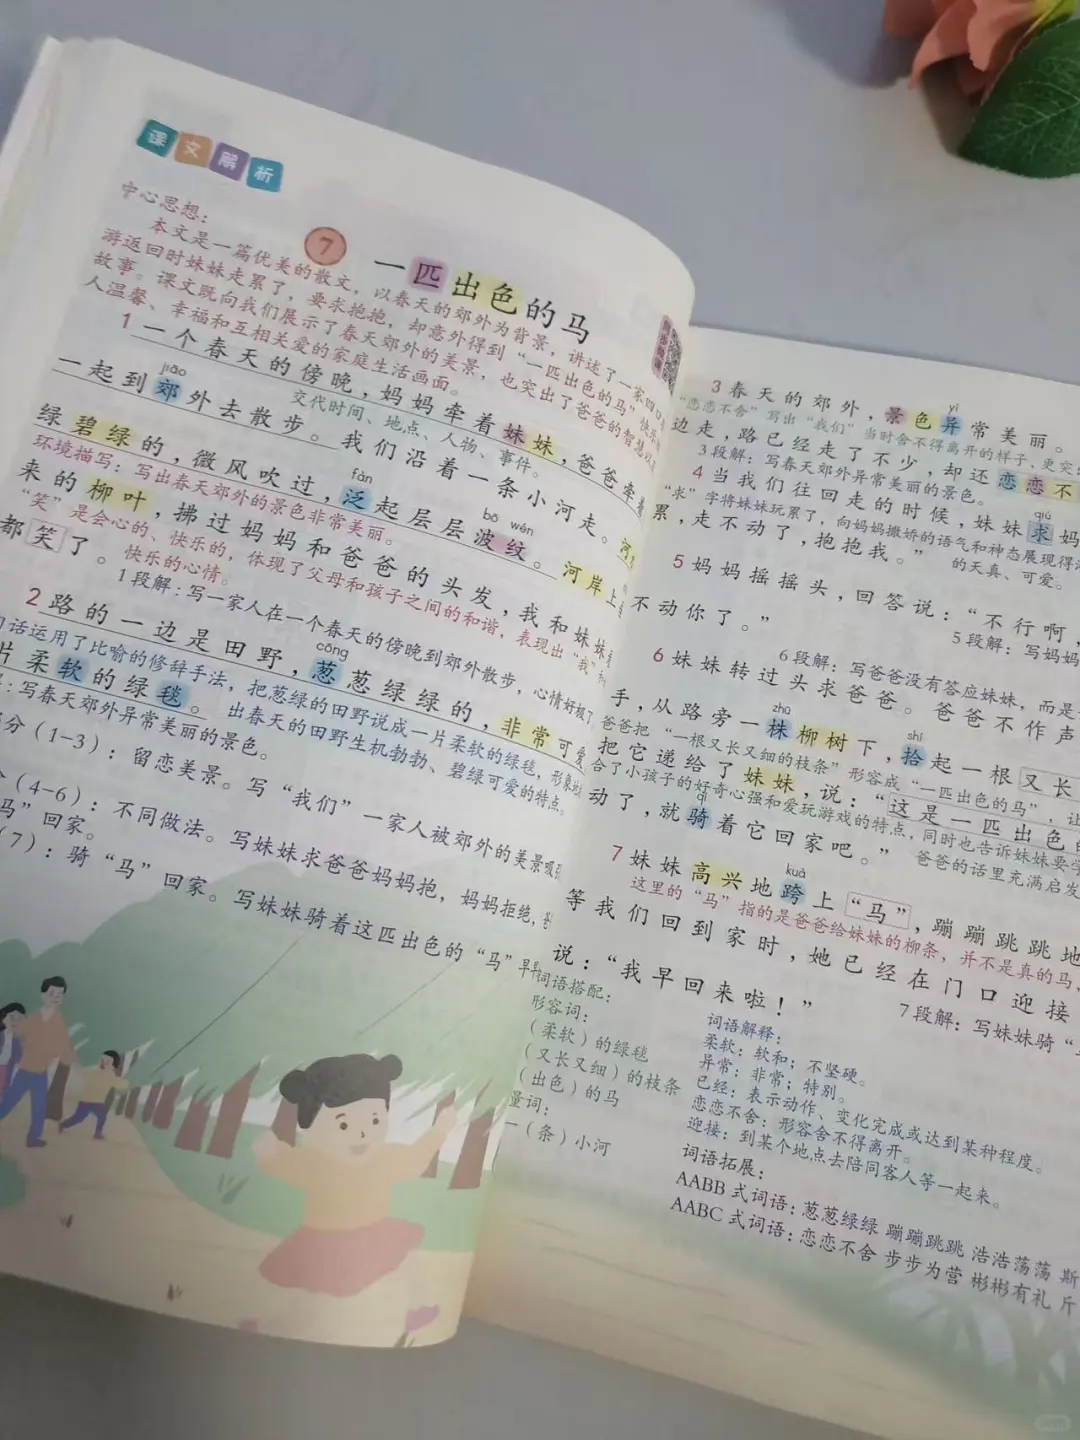 课文解析
中心思想:
7 一匹出色的马
本文是一篇优美的散文,以春天的郊外为背景,讲述了一家四口
游返回时妹妹走累了,要求抱抱,却意外得到“一匹出色的马”快乐
故事。课文既向我们展示了春天郊外的美景,也突出了爸爸的智慧以
人温馨、幸福和互相关爱的家庭生活画面。
1 一个春天的傍晚,妈妈牵着妹妹,爸爸牵着
交代时间、地点、人物、事件。
jiāo
一起到郊外去散步。我们沿着一条小河走。河
绿碧绿的,微风吹过,泛起层层波纹。河岸上
fàn bō wén
环境描写:写出春天郊外的景色非常美丽。
来的柳叶,拂过妈妈和爸爸的头发,我和妹妹
“笑”是会心的、快乐的,体现了父母和孩子之间的和谐,表现出“我”和
都笑了。
快乐的心情。
1段解:写一家人在一个春天的傍晚到郊外散步,心情好极了
2 路的一边是田野,葱葱绿绿的,非常可爱
cōng
话运用了比喻的修辞手法,把葱绿的田野说成一片柔软的绿毯,形象地
片柔软的绿毯。
出春天的田野生机勃勃、碧绿可爱的特点。
:写春天郊外异常美丽的景色。
分(1-3):留恋美景。写“我们”一家人被郊外的美景吸
(4-6):不同做法。写妹妹求爸爸妈妈抱,妈妈拒绝,
马”回家。
(7):骑“马”回家。写妹妹骑着这匹出色的“马”早
3 春天的郊外,景色异常美丽。
yì
“恋恋不舍”写出“我们”当时舍不得离开的样子、更突
边走,路已经走了不少,却还恋恋不
3段解:写春天郊外异常美丽的景色。
4 当我们往回走的时候,妹妹求妈
qiú
“求”字将妹妹玩累了,向妈妈撒娇的语气和神态展现得
累,走不动了,抱抱我。”
的天真、可爱。
5 妈妈摇摇头,回答说:“不行啊,
不动你了。”
5段解:写妈妈
6段解:写爸爸没有答应妹妹,而是
6 妹妹转过头求爸爸。爸爸不作声
zhū shí
手,从路旁一株柳树下,拾起一根又长
爸爸把“一根又长又细的枝条”形容成“一匹出色的马”,让
把它递给了妹妹,说:“这是一匹出色的
合了小孩子的好奇心强和爱玩游戏的特点,同时也告诉妹妹要学
qí
动了,就骑着它回家吧。”
爸爸的话里充满启发
kuà
7 妹妹高兴地跨上“马”,蹦蹦跳跳地
这里的“马”指的是爸爸给妹妹的柳条,并不是真的马,
等我们回到家时,她已经在门口迎接
说:“我早回来啦!”
7段解:写妹妹骑“
词语搭配:
形容词:
(柔软)的绿毯
(又长又细)的枝条
(出色)的马
量词:
一(条)小河
词语解释:
柔软:软和;不坚硬。
异常:非常;特别。
已经:表示动作、变化完成或达到某种程度。
恋恋不舍:形容舍不得离开。
迎接:到某个地点去陪同客人等一起来。
词语拓展:
AABB式词语:葱葱绿绿 蹦蹦跳跳 浩浩荡荡 斯
AABC式词语:恋恋不舍 步步为营 彬彬有礼 斤